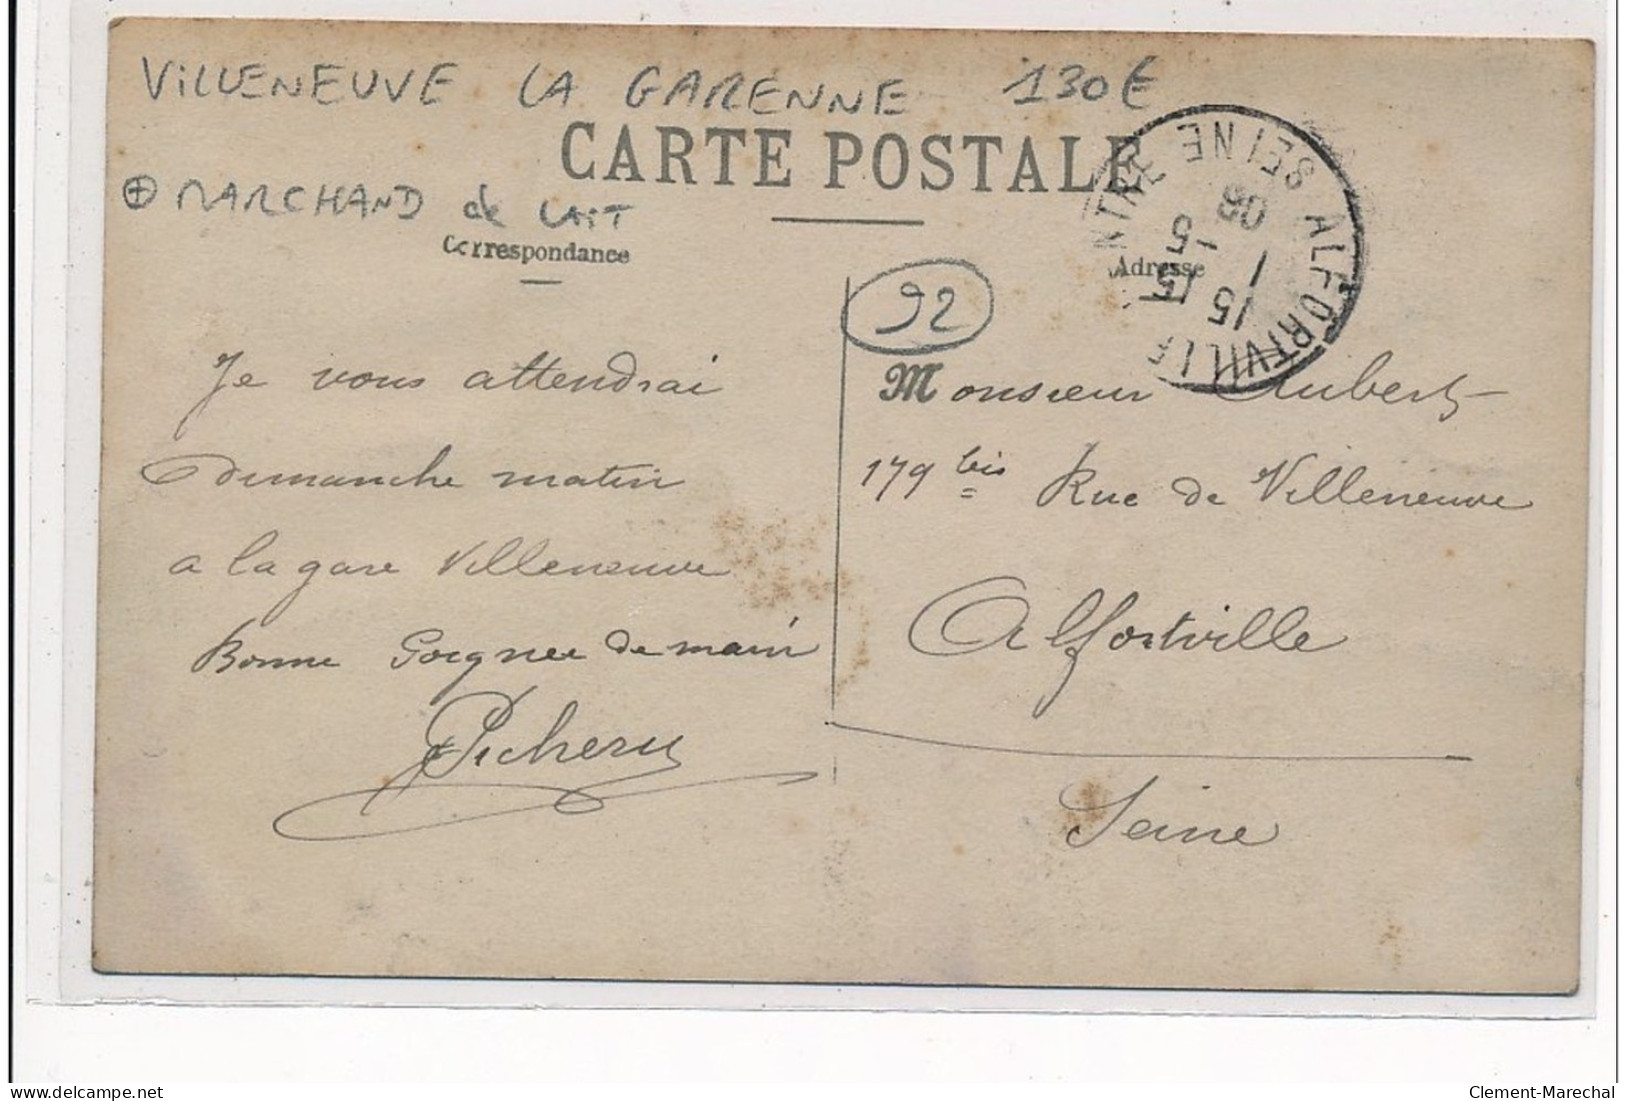 VILLENEUVE LA GARENNE 130€
CARTE POSTALE
⊕ MARCHAND de LAIT
Correspondance
Adresse
92
ALFORTVILLE SEINE
15 15
-5
08
Je vous attendrai
dimanche matin
a la gare Villeneuve
Bonne Poignee de main
Pichery
Monsieur Aubert
179 bis Rue de Villeneuve
Alfortville
Seine
Clement-Marechal